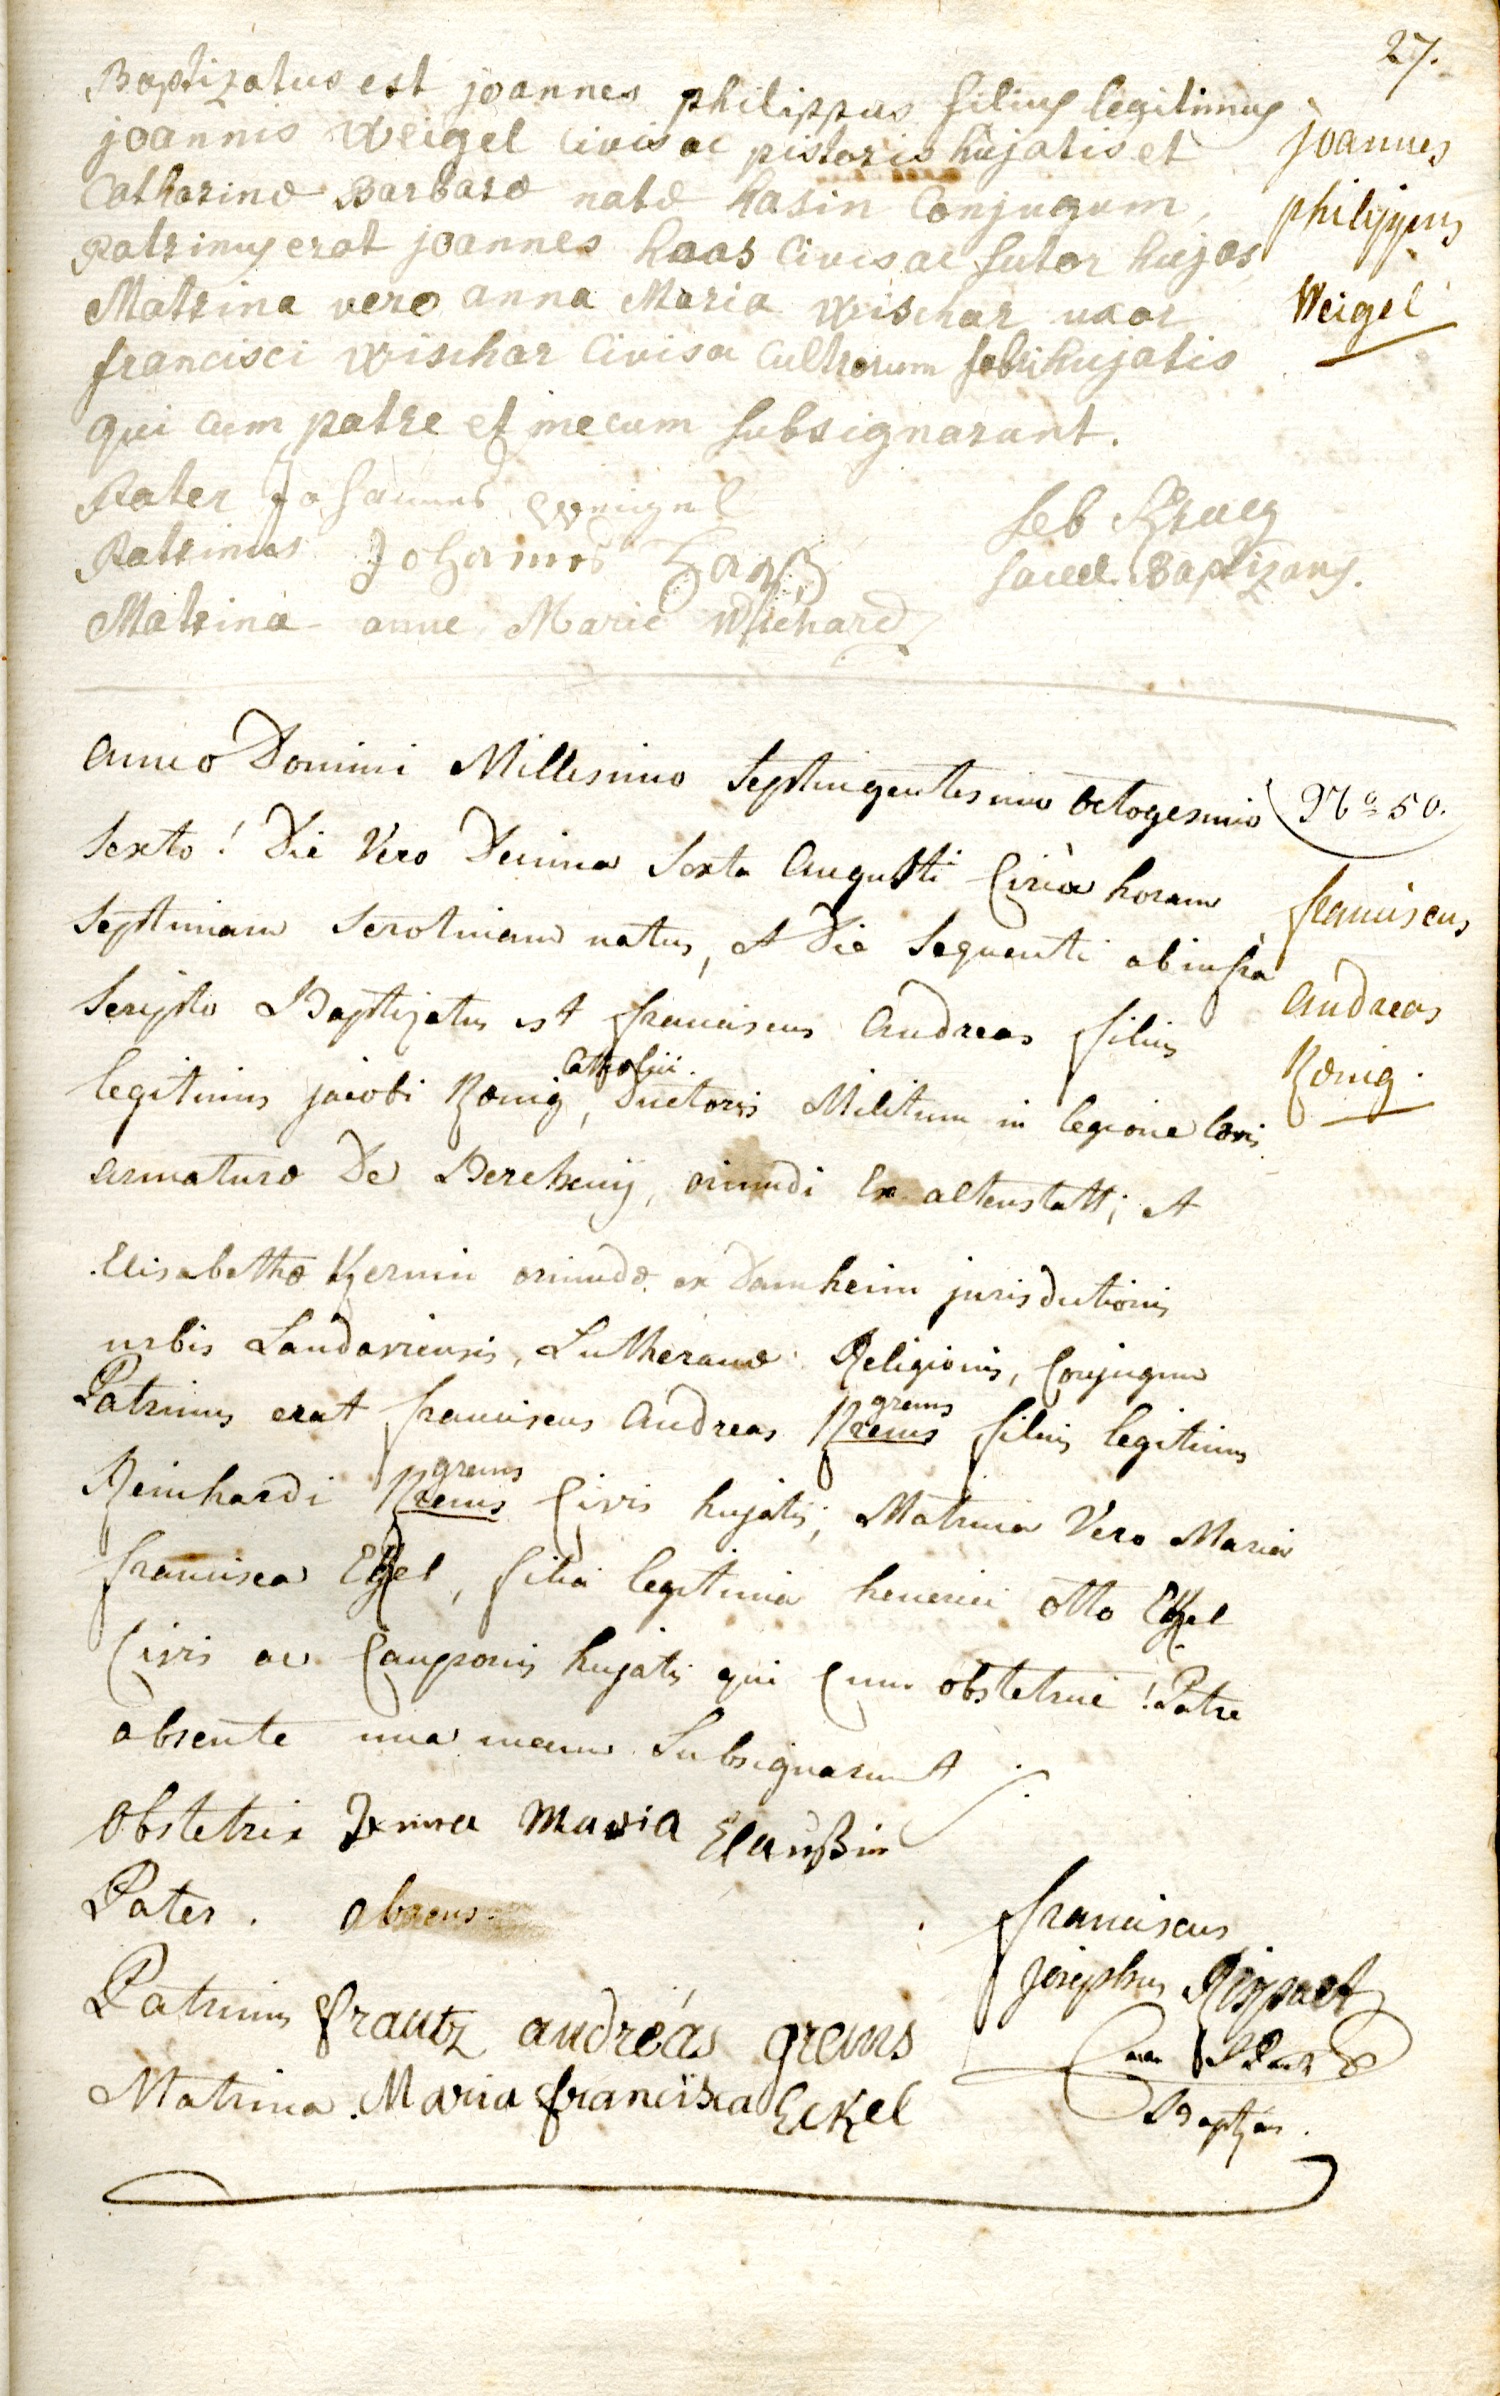 27.
Baptizatus est joannes philippus filius legitimus
joannis Weigel civis ac pistoris hujatis et
Catharinæ Barbaræ natæ hasin Conjugum,
Patrinus erat joannes haas Civis ac sutor hujas,
Matrina vero anna Maria Wischar uxor
francisci Wischar Civis ac Cultrorum fabri hujatis
qui cum patre et mecum subsignarunt.
joannes
philippus
Weigel
Pater Johannes Weigel
Patrinus Johannes
Matrina anne Marie
Seb
Sacerd. Baptizans.
Anno Domini Millesimo Septingentesimo octogesimo
Sexto! Die Vero Decima Sexta Augusti Circa horam
Septimam Serotinam natus, et Die Sequenti ab infra
Scripto Baptizatus est franciscus Andreas filius
legitimus jacobi Kœnig, Catholici. Ductoris Militum in legione levis
armaturæ De Bercheny, oriundi Ex altenstatt; et
Elisabethæ Kernin oriundæ ex Damheim jurisdictionis
urbis Landaviensis, Lutheranæ Religionis, Conjugum
Patrinus erat franciscus Andreas Krems grems filius legitimus
Reinhardi Krems grems Civis hujatis; Matrina Vero Maria
francisca Ekel, filia legitima henrici otto Ekel
Civis ac Cauponis hujatis qui Cum obstetrice! Patre
absente una mecum Subsignarunt
No 50.
franciscus
Andreas
Kœnig.
Obstetrix Anna Maria
Pater. absens.
Patrinus frantz andréas grems
Matrina. Maria francisca Eckel
franciscus
josephus
Baptizans.